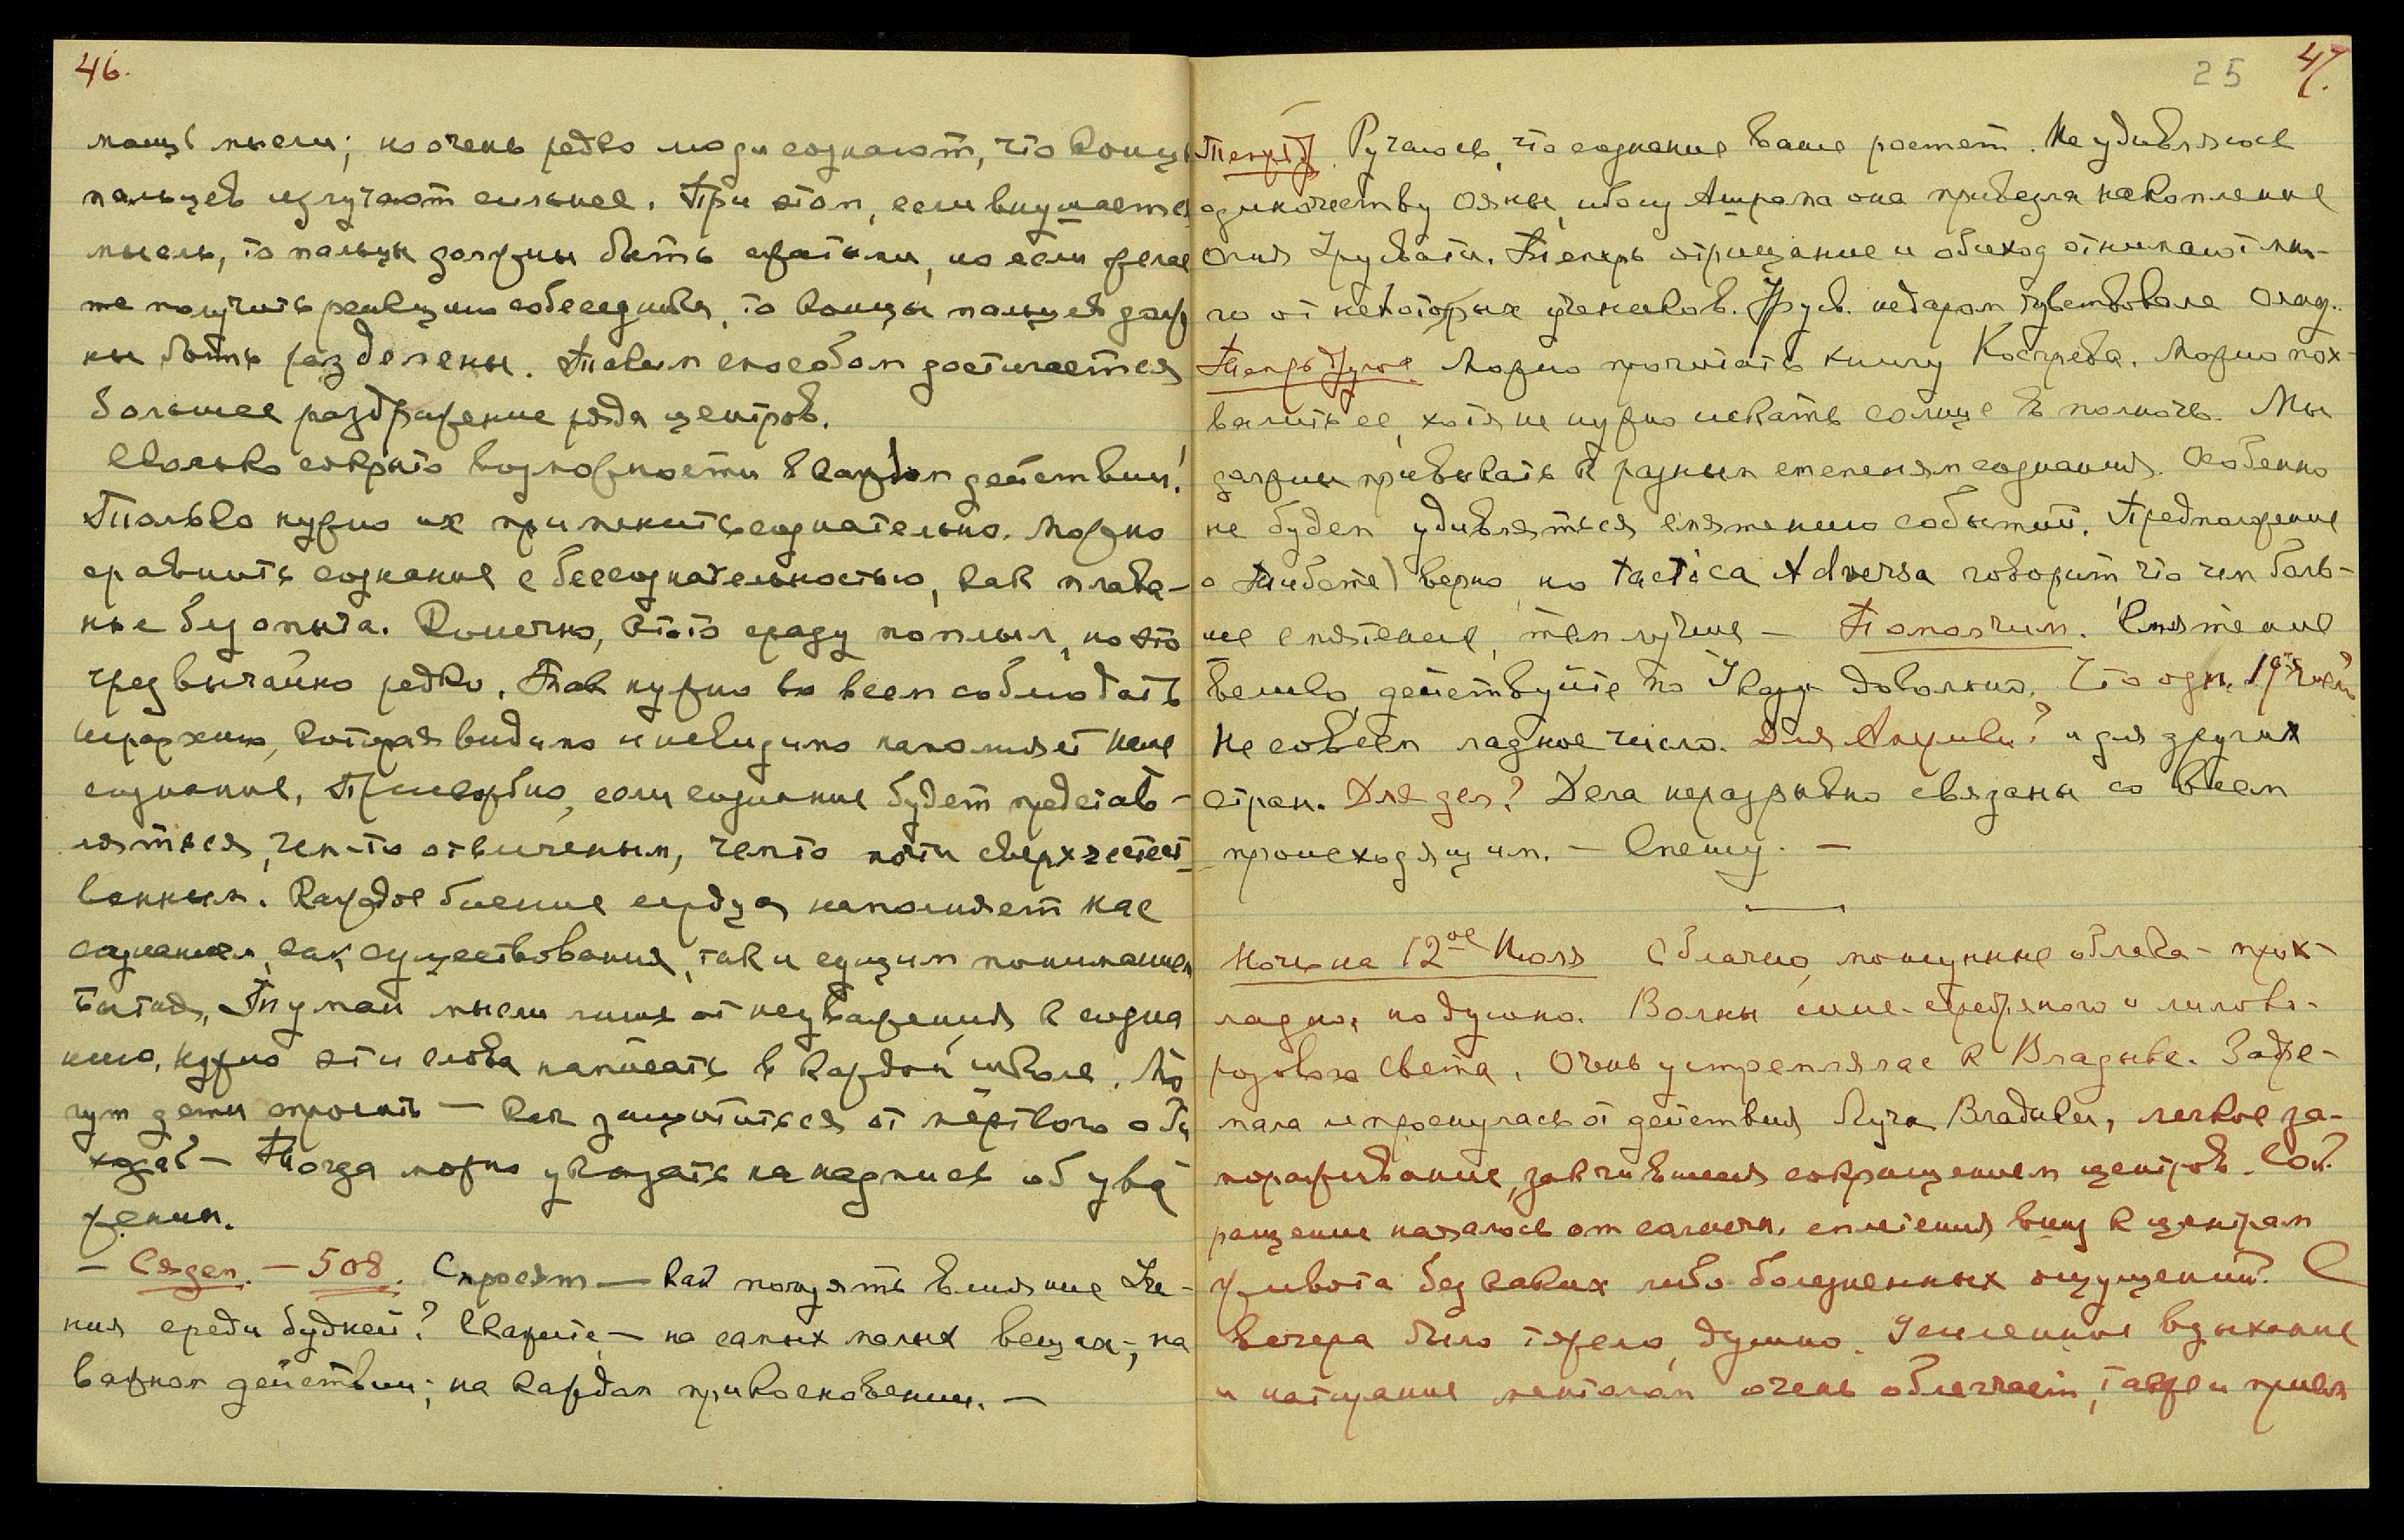 46.
мощь мысли; но очень редко люди сознают, что концы
пальцев излучают сильнее. При этом, если внушается
мысль, то пальцы должны быть сжатыми, но если желае
те получить реакцию собеседника, то концы пальцев долж
ны быть разделены. Таким способом достигается
большее раздражение ряда центров.
Сколько сокрыто возможности в каждом действии!
Только нужно их применить сознательно. Можно
сравнить сознание с бессознательностью, как плава-
ние без опыта. Конечно, кто-то сразу поплыл, но это
чрезвычайно редко. Так нужно во всем соблюдать
иерархию, которая видимо и невидимо наполняет наше
сознание. Прискорбно, если сознание будет представ-
ляться, чем-то отвлеченным, чем-то почти сверхъестест
венным. Каждое биение сердца наполняет нас
сознанием, как существования, так и сущим пониманием
Бытия. Туман мысли лишь от неуважения к созна
нию. Нужно эти слова написать в каждой школе. Мо
гут дети спросить — как защититься от мертвого оби
хода? — Тогда можно указать на надпись об ува
жении.
— Сядем. — 508. Спросят — как познать влияние Уче-
ния среди будней? Скажите, — на самых малых вещах; на
каждом действии; на каждом прикосновении. —
25 47.
Теперь Ручаюсь, что сознание ваше растет. Не удивляюсь
одиночеству Ояны, ибо из Ашрама она привезла накопление
огня Урусвати. Теперь отрицание и обиход отнимают мно-
го от некоторых учеников. Урусв. недаром чувствовала охлад..
Теперь другое Можно прочитать книгу Косгрева. Можно пох-
валить ее, хотя не нужно искать солнце в полночь. Мы
должны привыкать к разным степеням сознания. Особенно
не будем удивляться смятению событий. Предположение
о Тибете) верно, но tactica Adversa говорит, что чем боль-
шее смятение, тем лучше — Помолчим. Смятение
велико, действуйте по Указу. Довольно. Что озн. 19ое Июля?
Не совсем ладное число. Для Америки? и для других
стран. Для дел? Дела неразрывно связаны со всем
происходящим. — Спешу. —
Ночь на 12ое Июля Облачно, подлунные облака — прох-
ладно, но душно. Волны сине-серебряного и лилово-
розового света. Очень устремлялась к Владыке. Задре-
мала и проснулась от действия Луча Владыки, легкое за-
мораживание, закончившееся сокращением центров. Сок-
ращение началось от солнечн. сплетения вниз к центрам
живота без каких либо болезненных ощущений. С
вечера было тяжело, душно. Усиленное вдыхание
и натирание ментолом очень облегчает, также и прием